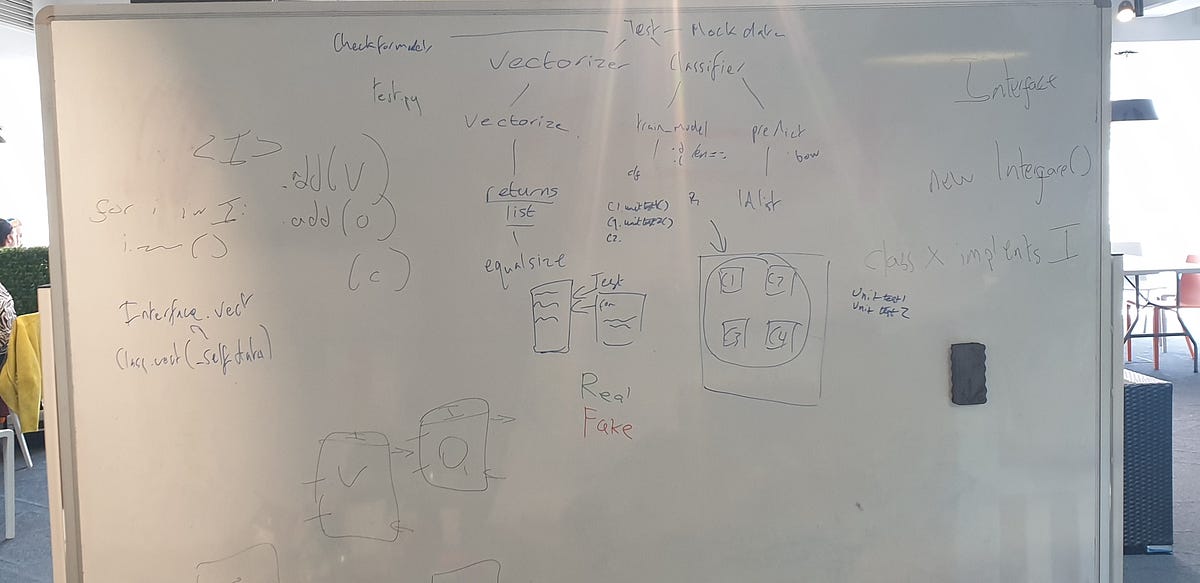 Test - Mock data
Checkformodel
Vectorizer
Classifier
test.py
Vectorize
train_model
predict
len==
bow
clf
returns
list
C1.unittest()
C1.unittest2()
C2.
equalsize
Test
for
C1
C2
C3
C4
Unit test1
Unit test2
Real
Fake
<I>
.add(V)
for i in I:
.add(O)
(C)
Interface.vect
Class.vect(_self, data)
I
V
I
O
Interface
new Interfare()
class X implents I